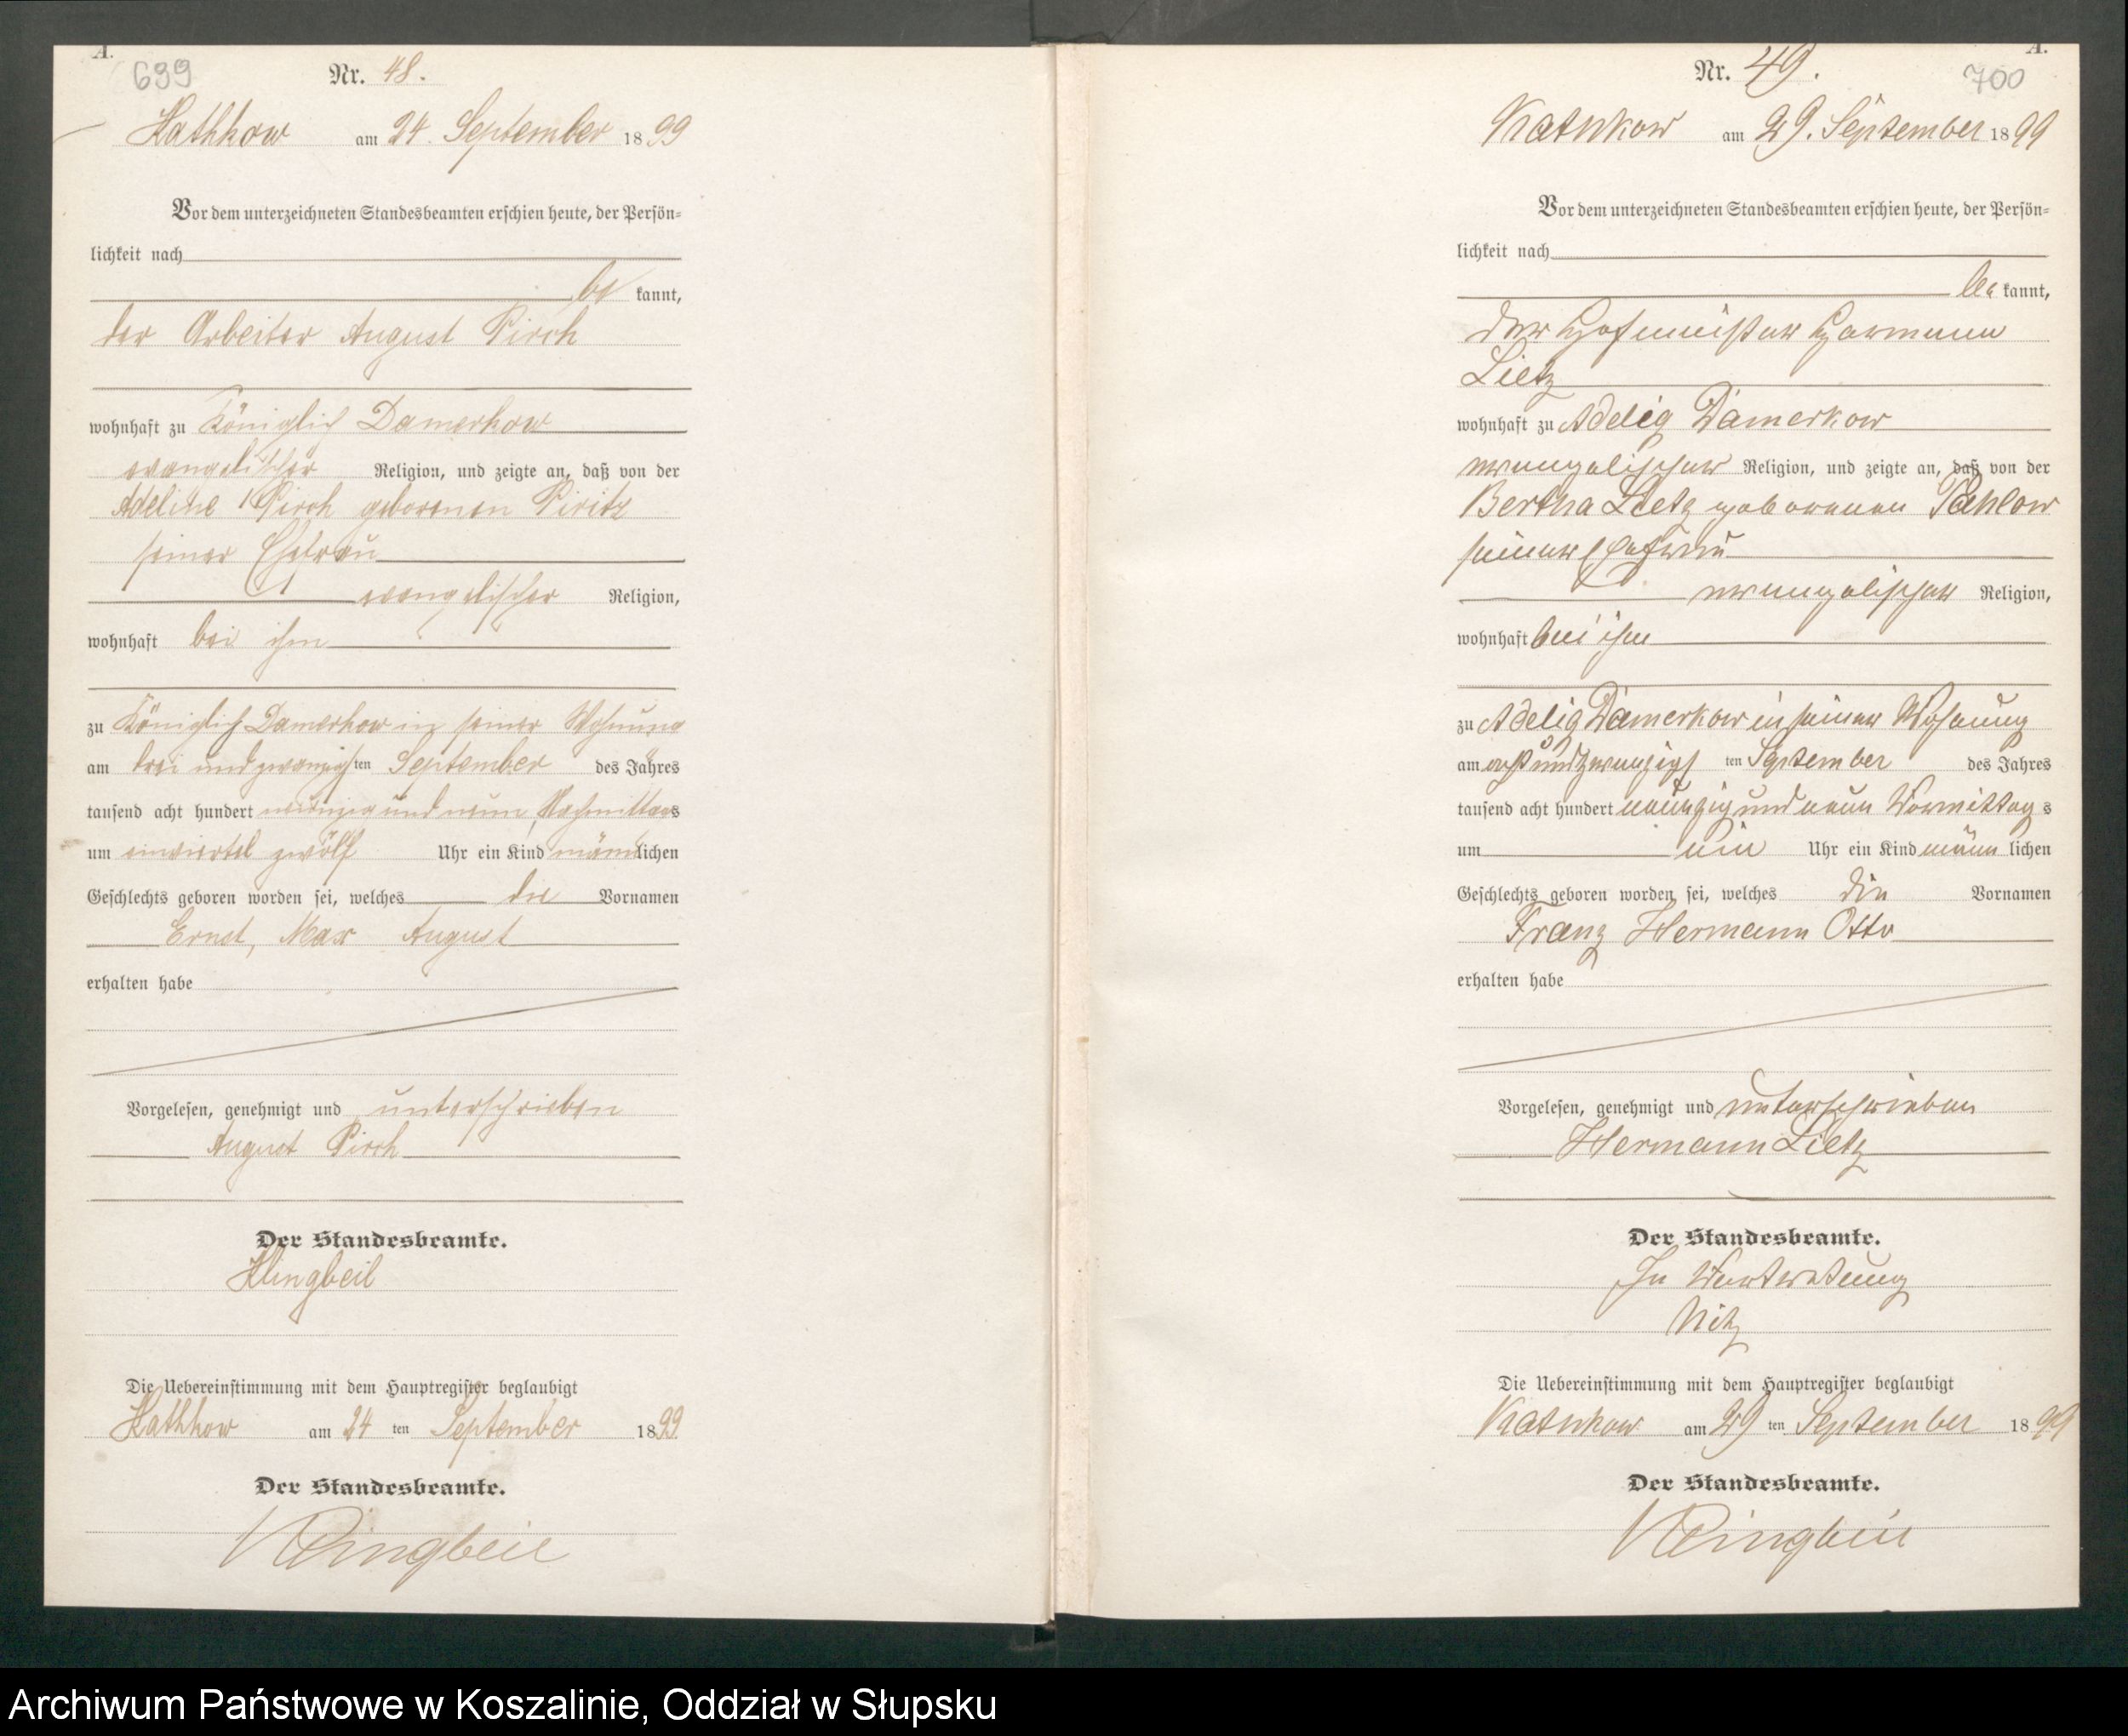 A.
699
Nr. 48.
Kathkow am 24. September 1899
Vor dem unterzeichneten Standesbeamten erschien heute, der Persön=
lichkeit nach
be kannt,
der Arbeiter August Pirch
wohnhaft zu Königlich Damerkow
evangelischer Religion, und zeigte an, daß von der
Adeline Pirch geborenen Piritz
seiner Ehefrau
evangelischer Religion,
wohnhaft bei ihm
zu Königlich Damerkow in seiner Wohnung
am drei und zwanzigsten September des Jahres
tausend acht hundert neunzig und neun, Nachmittags
um einviertel zwölf Uhr ein Kind männlichen
Geschlechts geboren worden sei, welches die Vornamen
Ernst, Max August
erhalten habe
Vorgelesen, genehmigt und unterschrieben
August Pirch
Der Standesbeamte.
Klingbeil
Die Uebereinstimmung mit dem Hauptregister beglaubigt
Kathkow am 24 ten September 1899
Der Standesbeamte.
Klingbeil
A.
Nr. 49. 700
Katnkow am 29. September 1899
Vor dem unterzeichneten Standesbeamten erschien heute, der Persön=
lichkeit nach
be kannt,
der Hofmeister Hermann
Lietz
wohnhaft zu Adelig Damerkow
evangelischer Religion, und zeigte an, daß von der
Bertha Lietz geborenen Pahlow
seiner Ehefrau
evangelischer Religion,
wohnhaft bei ihm
zu Adelig Damerkow in seiner Wohnung
am acht und zwanzigsten September des Jahres
tausend acht hundert neunzig und neun Vormittags
um ein Uhr ein Kind männlichen
Geschlechts geboren worden sei, welches die Vornamen
Franz Hermann Otto
erhalten habe
Vorgelesen, genehmigt und unterschrieben
Hermann Lietz
Der Standesbeamte.
In Vertretung
Nitz
Die Uebereinstimmung mit dem Hauptregister beglaubigt
Katnkow am 29 ten September 1899
Der Standesbeamte.
Klingbeil
Archiwum Państwowe w Koszalinie, Oddział w Słupsku